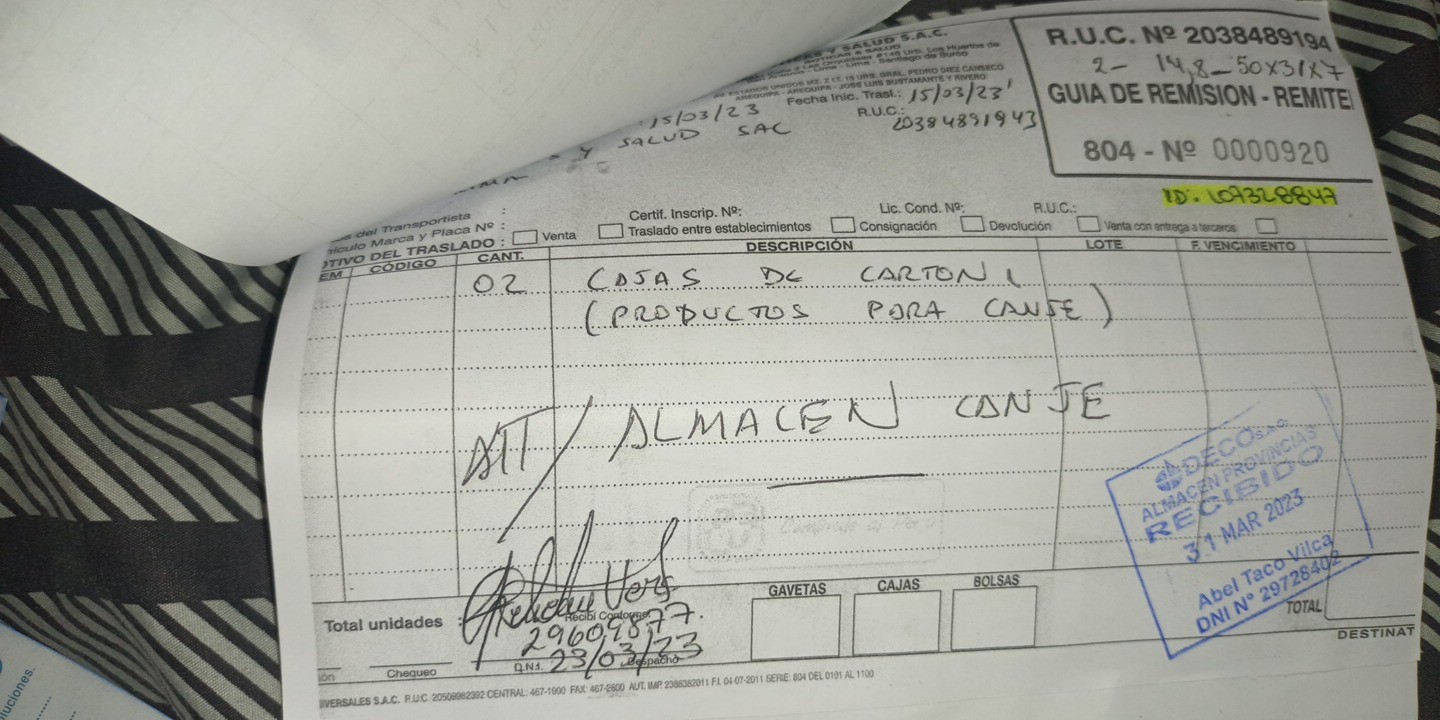 Y SALUD S.A.C.
R.U.C. Nº 2038489194
2- 14,8-50x31x7
GUIA DE REMISION - REMITE
804 - Nº 0000920
AREQUIPA - AREQUIPA - JOSE LUIS BUSTAMANTE Y RIVERO
15/03/23 Fecha Inic. Trasl.: 15/03/23
Y SALUD SAC R.U.C.: 20384891943
ID: 109328847
del Transportista :
Marca y Placa Nº : Certif. Inscrip. Nº: Lic. Cond. Nº: R.U.C.:
DEL TRASLADO : Venta Traslado entre establecimientos Consignación Devolución Venta con entrega a terceros
CÓDIGO CANT. DESCRIPCIÓN LOTE F. VENCIMIENTO
02 CAJAS DE CARTON (
(PRODUCTOS PARA CANJE)
ATT/ ALMACEN CANJE
DECO S.A.C.
ALMACEN PROVINCIAS
RECIBIDO
31 MAR 2023
Abel Taco Vilca
DNI Nº 29728402
Total unidades :
Recibí Conforme
29609877.
D.N.I. 23/03/23 Despacho
Chequeo
GAVETAS CAJAS BOLSAS
TOTAL
DESTINAT
VERSALES S.A.C. R.U.C. 20506982392 CENTRAL: 467-1900 FAX: 467-2600 AUT. IMP. 2386382011 F.I. 04-07-2011 SERIE: 804 DEL 0101 AL 1100
luciones.